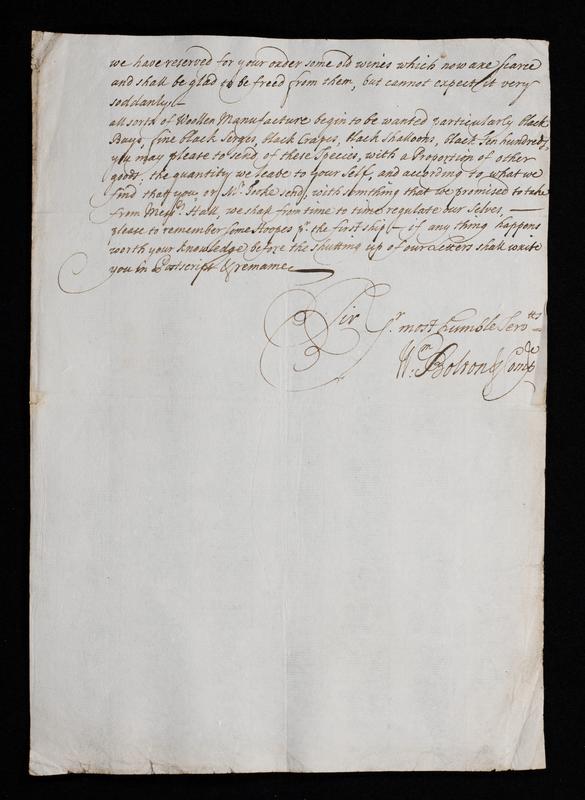 we have reserved for your order some old wines which now are scarce
and shall be glad to be freed from them, but cannot expect it very
soddanly,
all sorts of Woollen Manufacture begin to be wanted particularly black
Bays, fine black Serges, black Crapes, black Shalloons, black Ten hundreds,
you may please to send of these Species, with a Proportion of other
goods; the quantity we leave to your self, and according to what we
find that you or Mr. send, with somthing that we promised to take
from Messrs. Hall, we shall from time to time regulate our selves,
please to remember some Hoopes pr. the first ship if any thing happens
worth your knowledge before the shutting up of our Letters shall write
you in Postscript & remaine
Sir Yr. most humble Servtts
Wm. Bolton & Compe